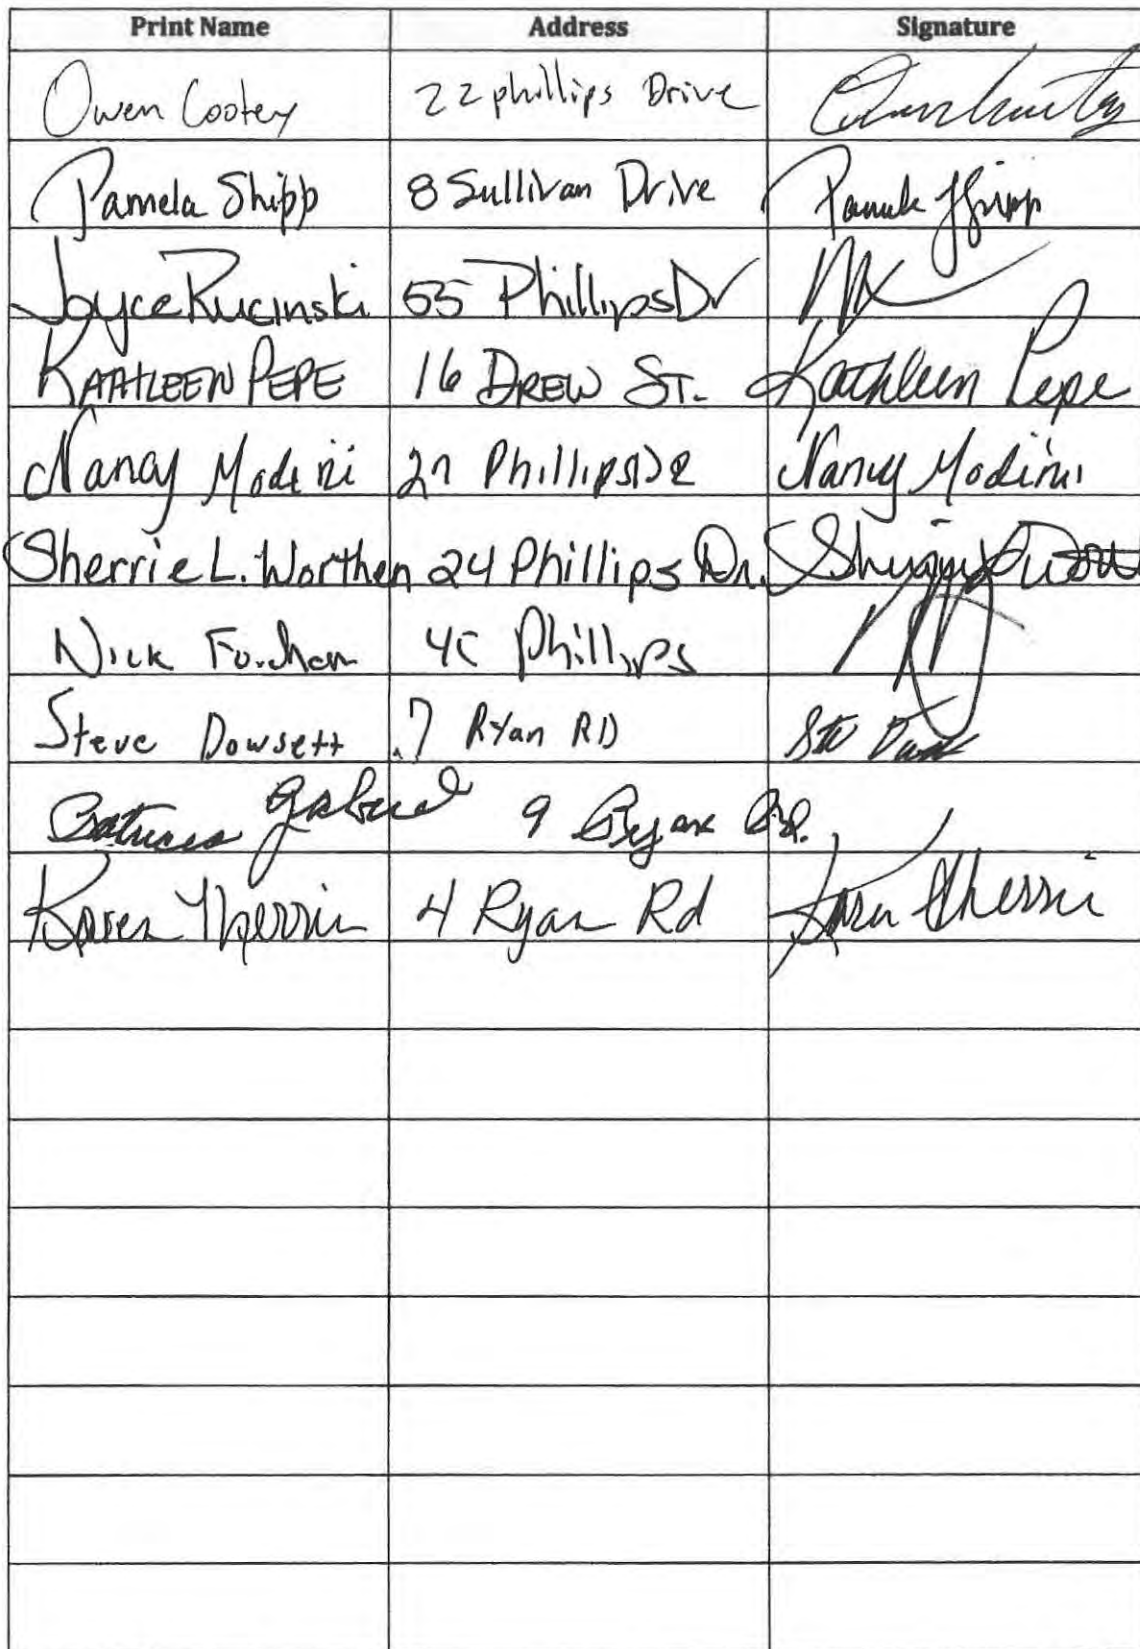 Print Name Address Signature
Owen Cootey 22 phillips Drive
Pamela Shipp 8 Sullivan Drive Pamela Shipp
Joyce Rucinski 55 Phillips Dr
KATHLEEN PEPE 16 DREW ST. Kathleen Pepe
Nancy Modini 27 Phillips DR Nancy Modini
Sherrie L. Worthen 24 Phillips Dr.
Nick Phillips
Steve Dowsett 7 Ryan RD
Gabriel 9 Ryan Rd.
Karen Therrien 4 Ryan Rd Karen Therrien